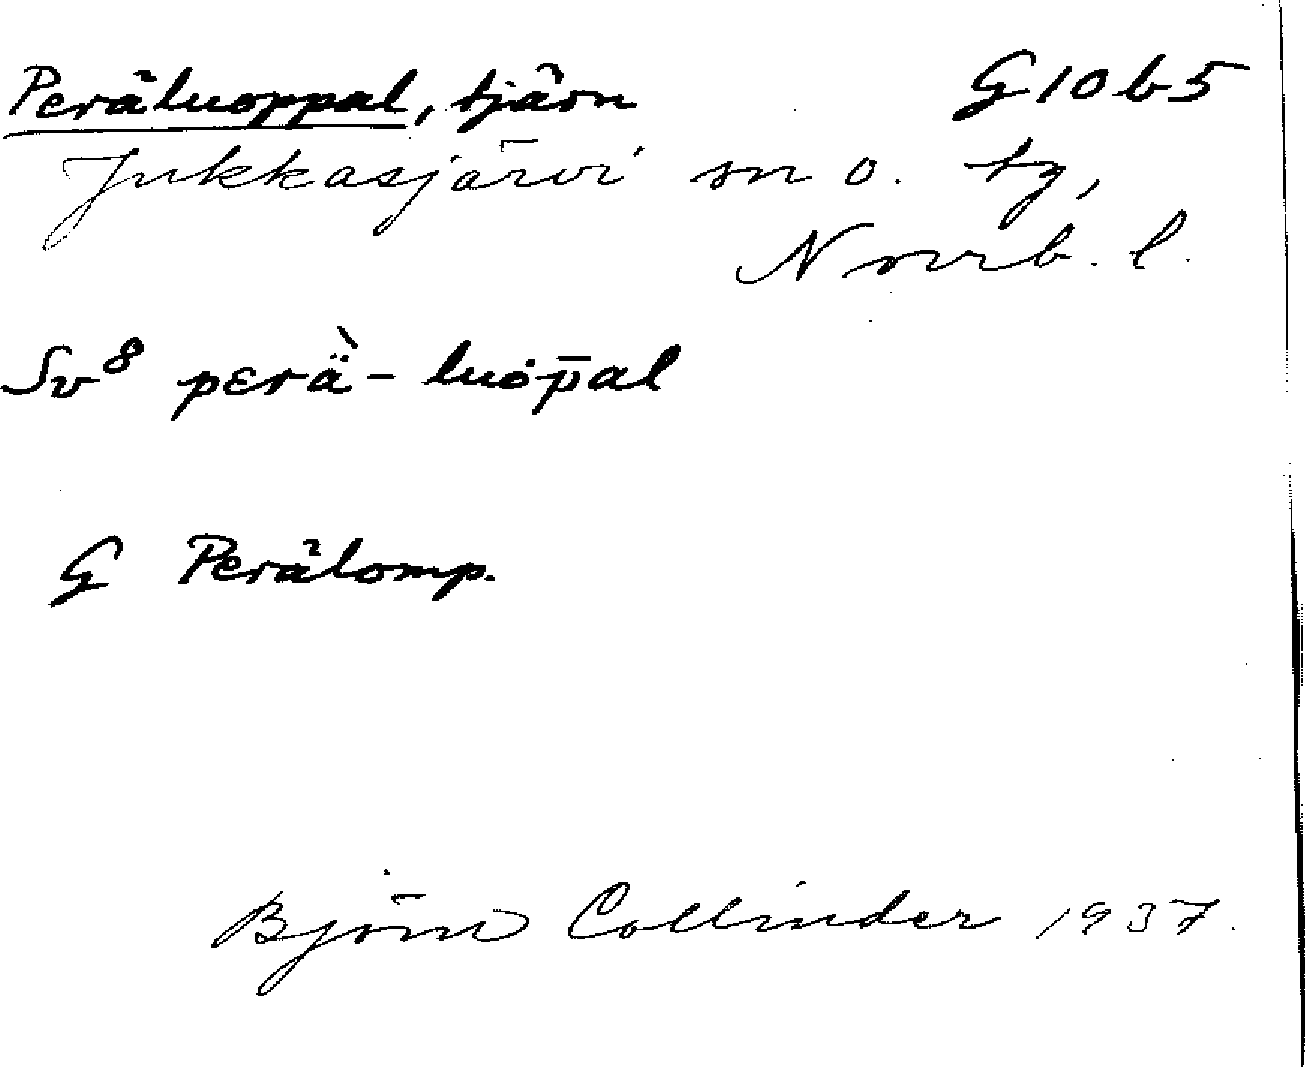 Peräluoppal, tjärn G10b5
Jukkasjärvi sn o. tg,
Norrb. l.
Sv⁸ pɛrä̀- luȯp̄al
G Perälomp.
Björn Collinder 1937.